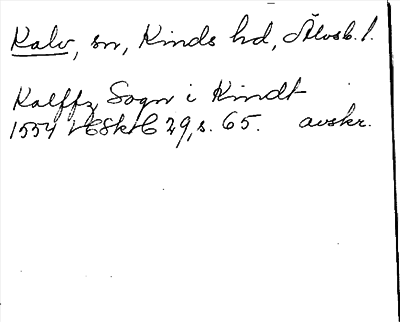 Kalv, sn, Kinds hd, Älvsb. l.
Kalffz Sogn i Kindt
1554 VGSkrC 29, s. 65. avskr.